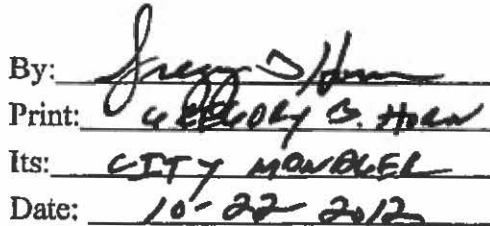 By: Gregory D Horn
Print: GREGORY B. HORN
Its: CITY MANAGER
Date: 10-22-2012